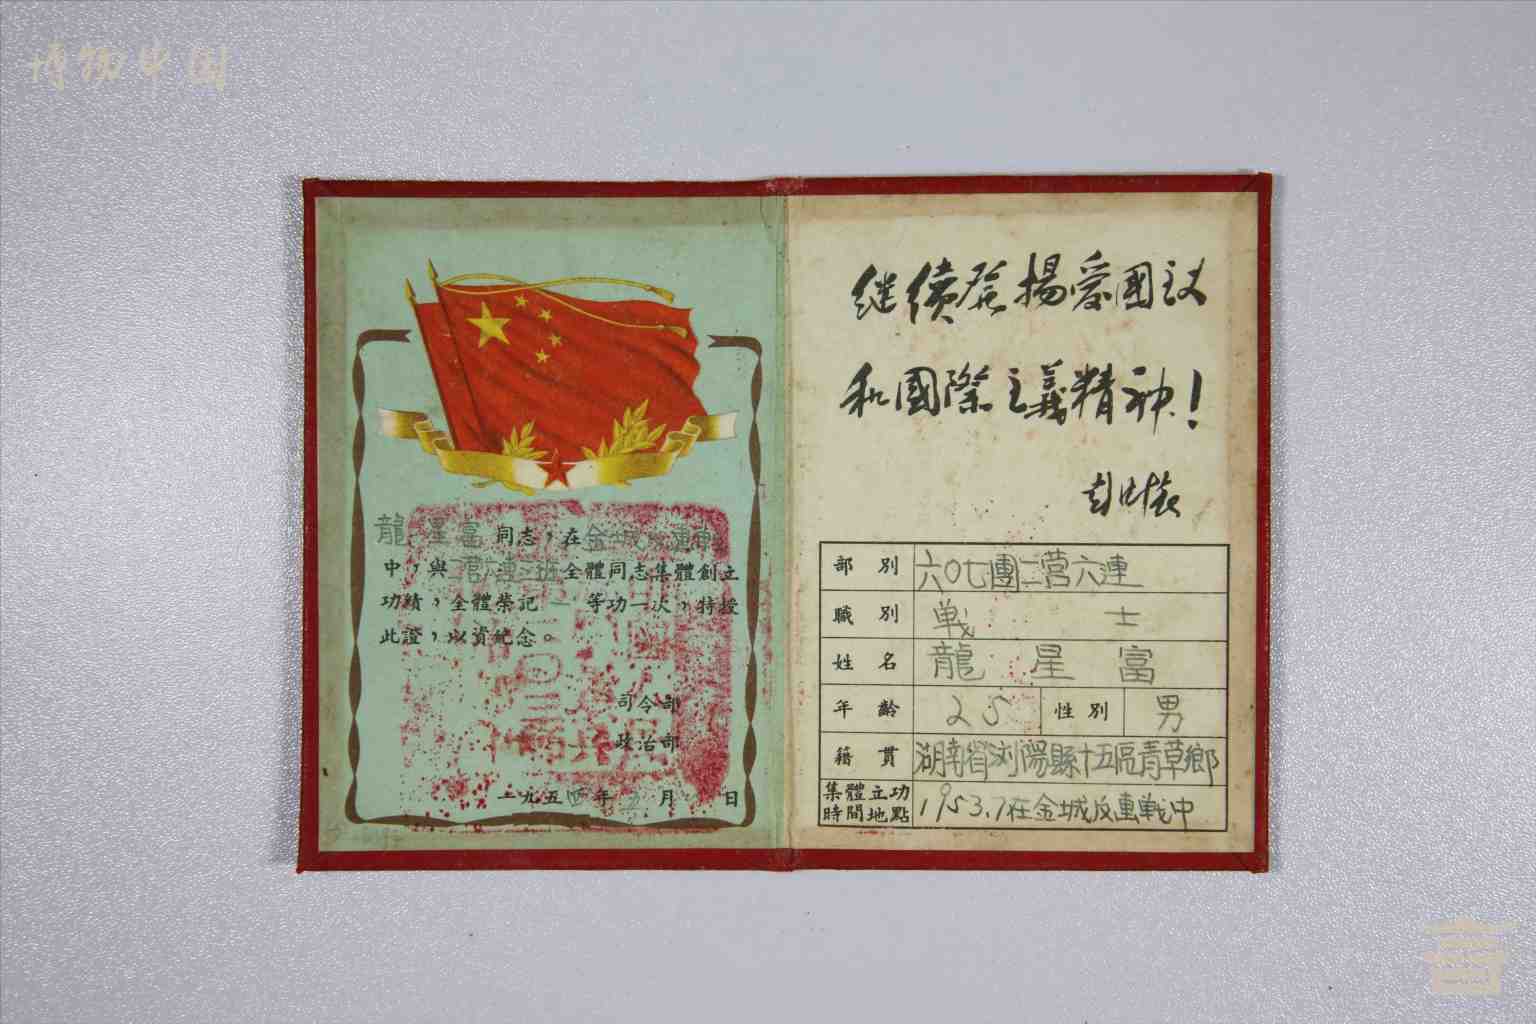 博物中国
龍星富同志，在金城反連戰
中，與二营六連二班全體同志集體創立
功績，全體榮記一等功一次，特授
此證，以資紀念。
司令部
政治部
一九五四年 月 日
继續发揚爱國主义
和國際主義精神！
彭德懷
部別 六〇七團二营六連
職別 戦士
姓名 龍星富
年齡 25 性別 男
籍貫 湖南省浏陽縣十五區青草鄉
集體立功時間地點 1953.7在金城反連戦中